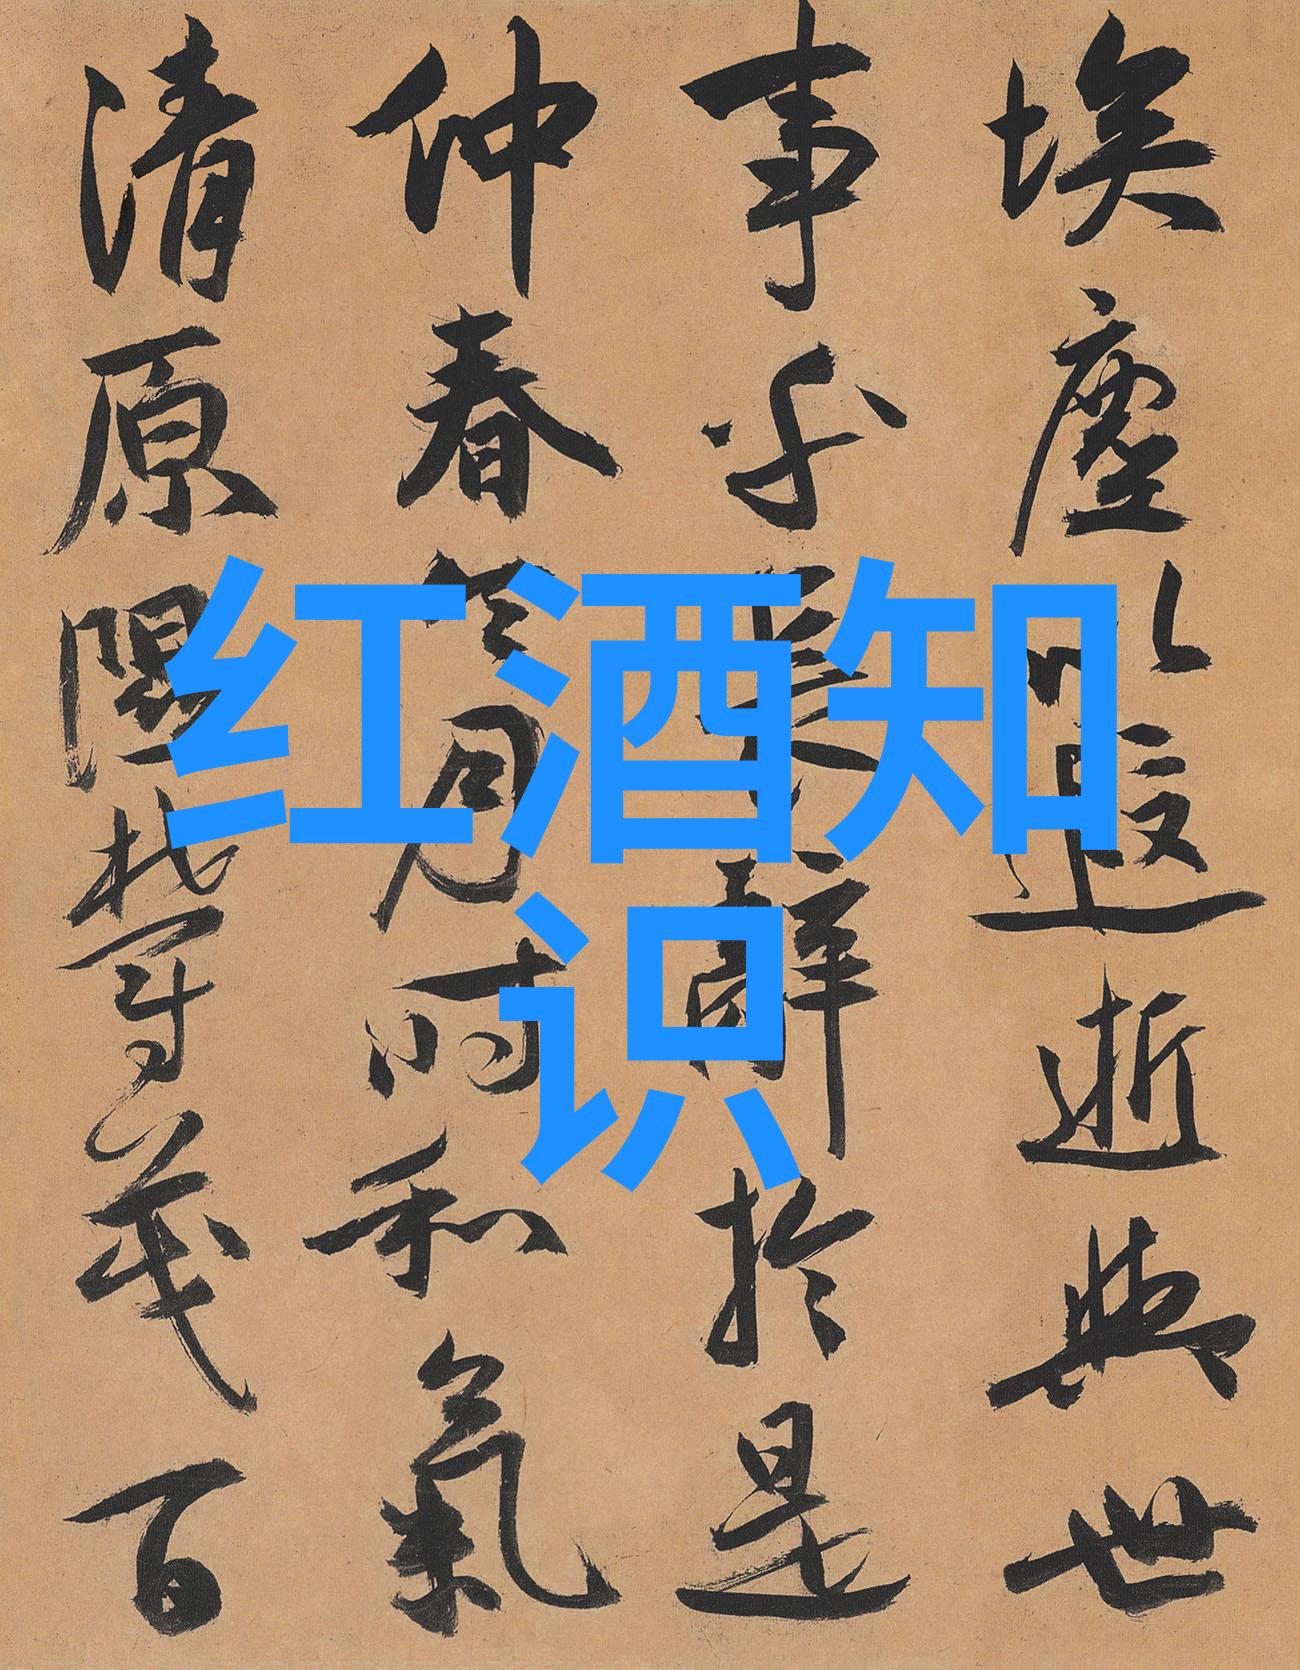 红酒知
识
埃塵以遐逝與世
事乎長辭於是
仲春令月時和氣
清原隰鬱茂百